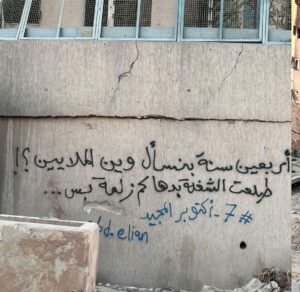 أربعين سنة بنسأل وين الملايين ؟!
طلعت الشغلة بدها كم زلمة بس ...
# 7_أكتوبر المجيد
bd.elian